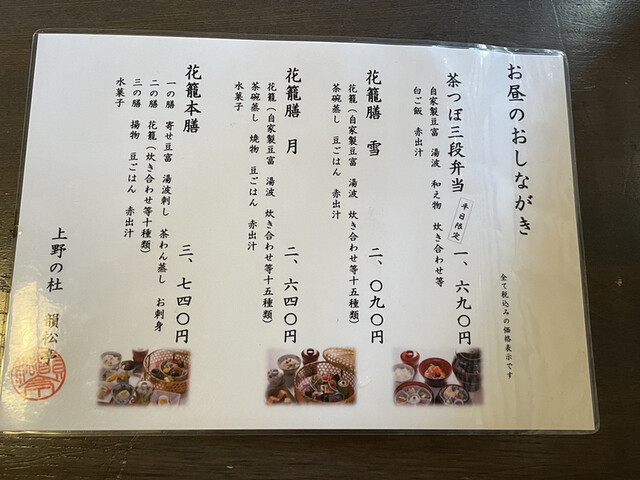 お昼のおしながき
全て税込みの価格表示です
茶つぼ三段弁当 平日限定 一、六九〇円
自家製豆富 湯波 和え物 炊き合わせ等
白ご飯 赤出汁
花籠膳 雪 二、〇九〇円
花籠（自家製豆富 湯波 炊き合わせ等十五種類）
茶碗蒸し 豆ごはん 赤出汁
花籠膳 月 二、六四〇円
花籠（自家製豆富 湯波 炊き合わせ等十五種類）
茶碗蒸し 焼物 豆ごはん 赤出汁
水菓子
花籠本膳 三、七四〇円
一の膳 寄せ豆富 湯波刺し 茶わん蒸し お刺身
二の膳 花籠（炊き合わせ等十種類）
三の膳 揚物 豆ごはん 赤出汁
水菓子
上野の杜 韻松亭